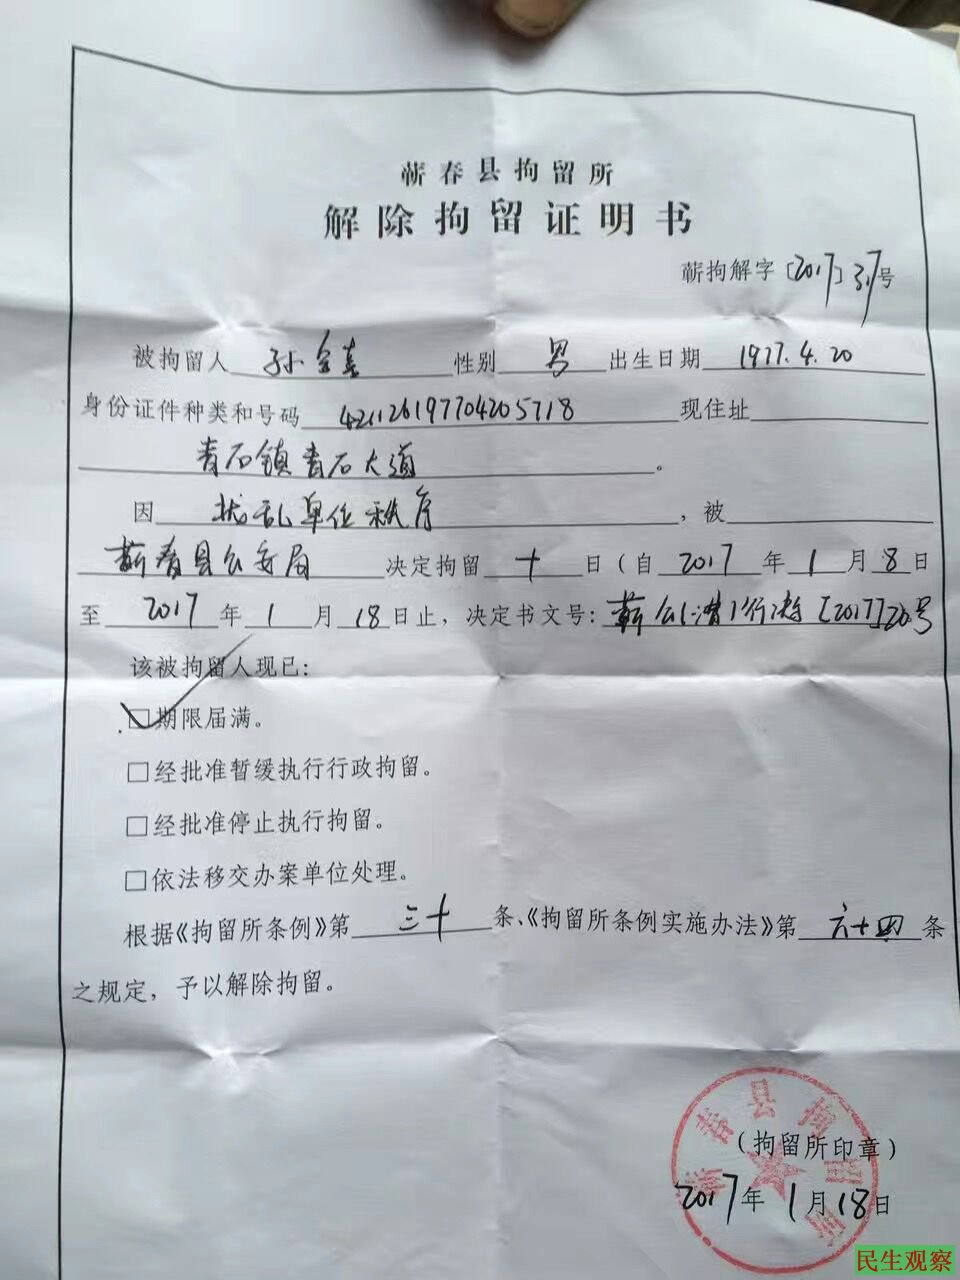 蕲春县拘留所
解除拘留证明书
蕲拘解字〔2017〕37号
被拘留人 孙全喜 性别 男 出生日期 1977.4.20
身份证件种类和号码 421126197704205718 现住址
青石镇青石大道。
因 扰乱单位秩序,被
蕲春县公安局 决定拘留 十 日(自 2017 年 1 月 8 日
至 2017 年 1 月 18 日止,决定书文号: 蕲公(漕)行 [2017]20号
该被拘留人现已:
☑期限届满。
□经批准暂缓执行行政拘留。
□经批准停止执行拘留。
□依法移交办案单位处理。
根据《拘留所条例》第 三十 条、《拘留所条例实施办法》第 六十四 条
之规定,予以解除拘留。
蕲春县拘留所
(拘留所印章)
2017年 1月18日
民生观察